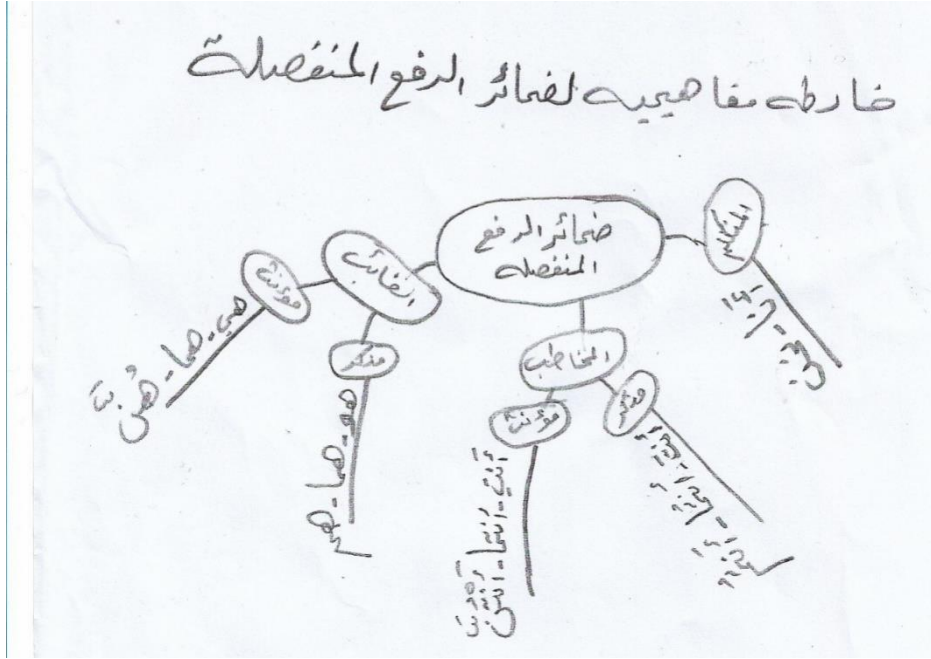 خارطه مفاهيميه لضمائر الرفع المنفصلة
ضمائر الرفع
المنفصله
المتكلم
أنا - نحن
المخاطب
مذكر
أنتَ - أنتما - أنتم
مؤنث
أنتِ - أنتما - أنتن
الغائب
مذكر
هو - هما - هم
مؤنث
هي - هما - هُنَّ